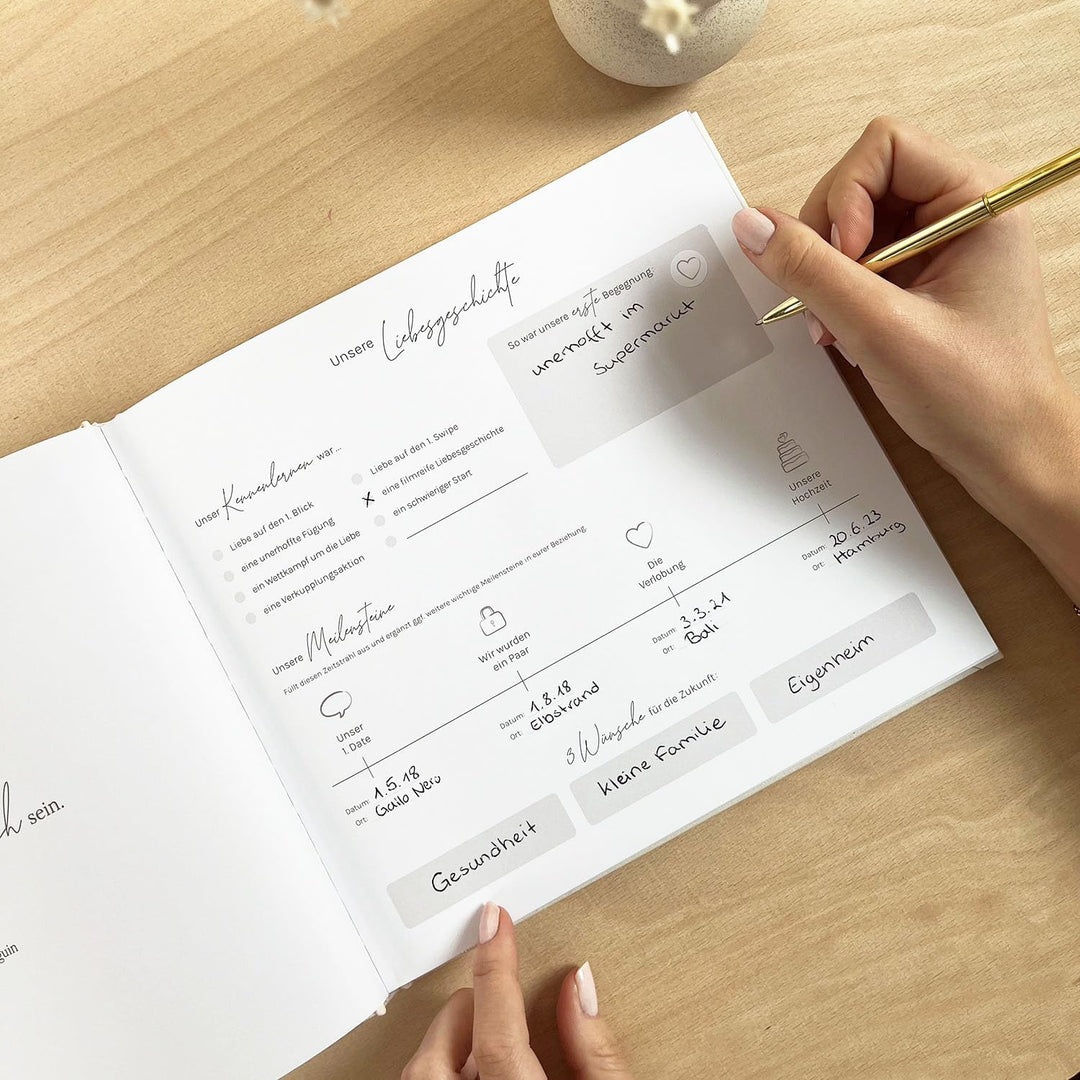 Unsere Liebesgeschichte
So war unsere erste Begegnung:
unerhofft im
Supermarkt
Unser Kennenlernen war...
Liebe auf den 1. Blick
eine unerhoffte Fügung
ein Wettkampf um die Liebe
eine Verkupplungsaktion
Liebe auf den 1. Swipe
x eine filmreife Liebesgeschichte
ein schwieriger Start
Unsere Meilensteine
Füllt diesen Zeitstrahl aus und ergänzt ggf. weitere wichtige Meilensteine in eurer Beziehung.
Unser
1. Date
Datum: 1.5.18
Ort: Gallo Nero
Wir wurden
ein Paar
Datum: 1.8.18
Ort: Elbstrand
Die
Verlobung
Datum: 3.3.21
Ort: Bali
Unsere
Hochzeit
Datum: 20.6.23
Ort: Hamburg
3 Wünsche für die Zukunft:
Gesundheit
kleine Familie
Eigenheim
sein.